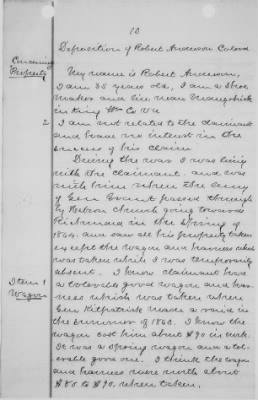 10
Deposition of Robert Anderson Colored
Concerning
Property
My name is Robert Anderson,
I am 35 years old, I am a Shoe
Maker and live near
in King Wm Co Va
2 I am not related to the claimant
and have no interest in the
success of his claim
During the war I was living
with the claimant. and was
with him when the army
of Gen Grant passed through
by Church going towards
Richmond in the Spring of
1864. and saw all his property taken
except the wagon and harness which
was taken while I was temporarily
absent. I know claimant had
Item 1
Wagon
a tolerable good wagon and har-
ness which was taken when
Gen Kilpatrick made a raid in
the summer of 1863. I know the
wagon cost him about $90 in
It was a spring wagon and a tol-
erable good one. I think the wagon
and harness were worth about
$80 to $90. when taken.